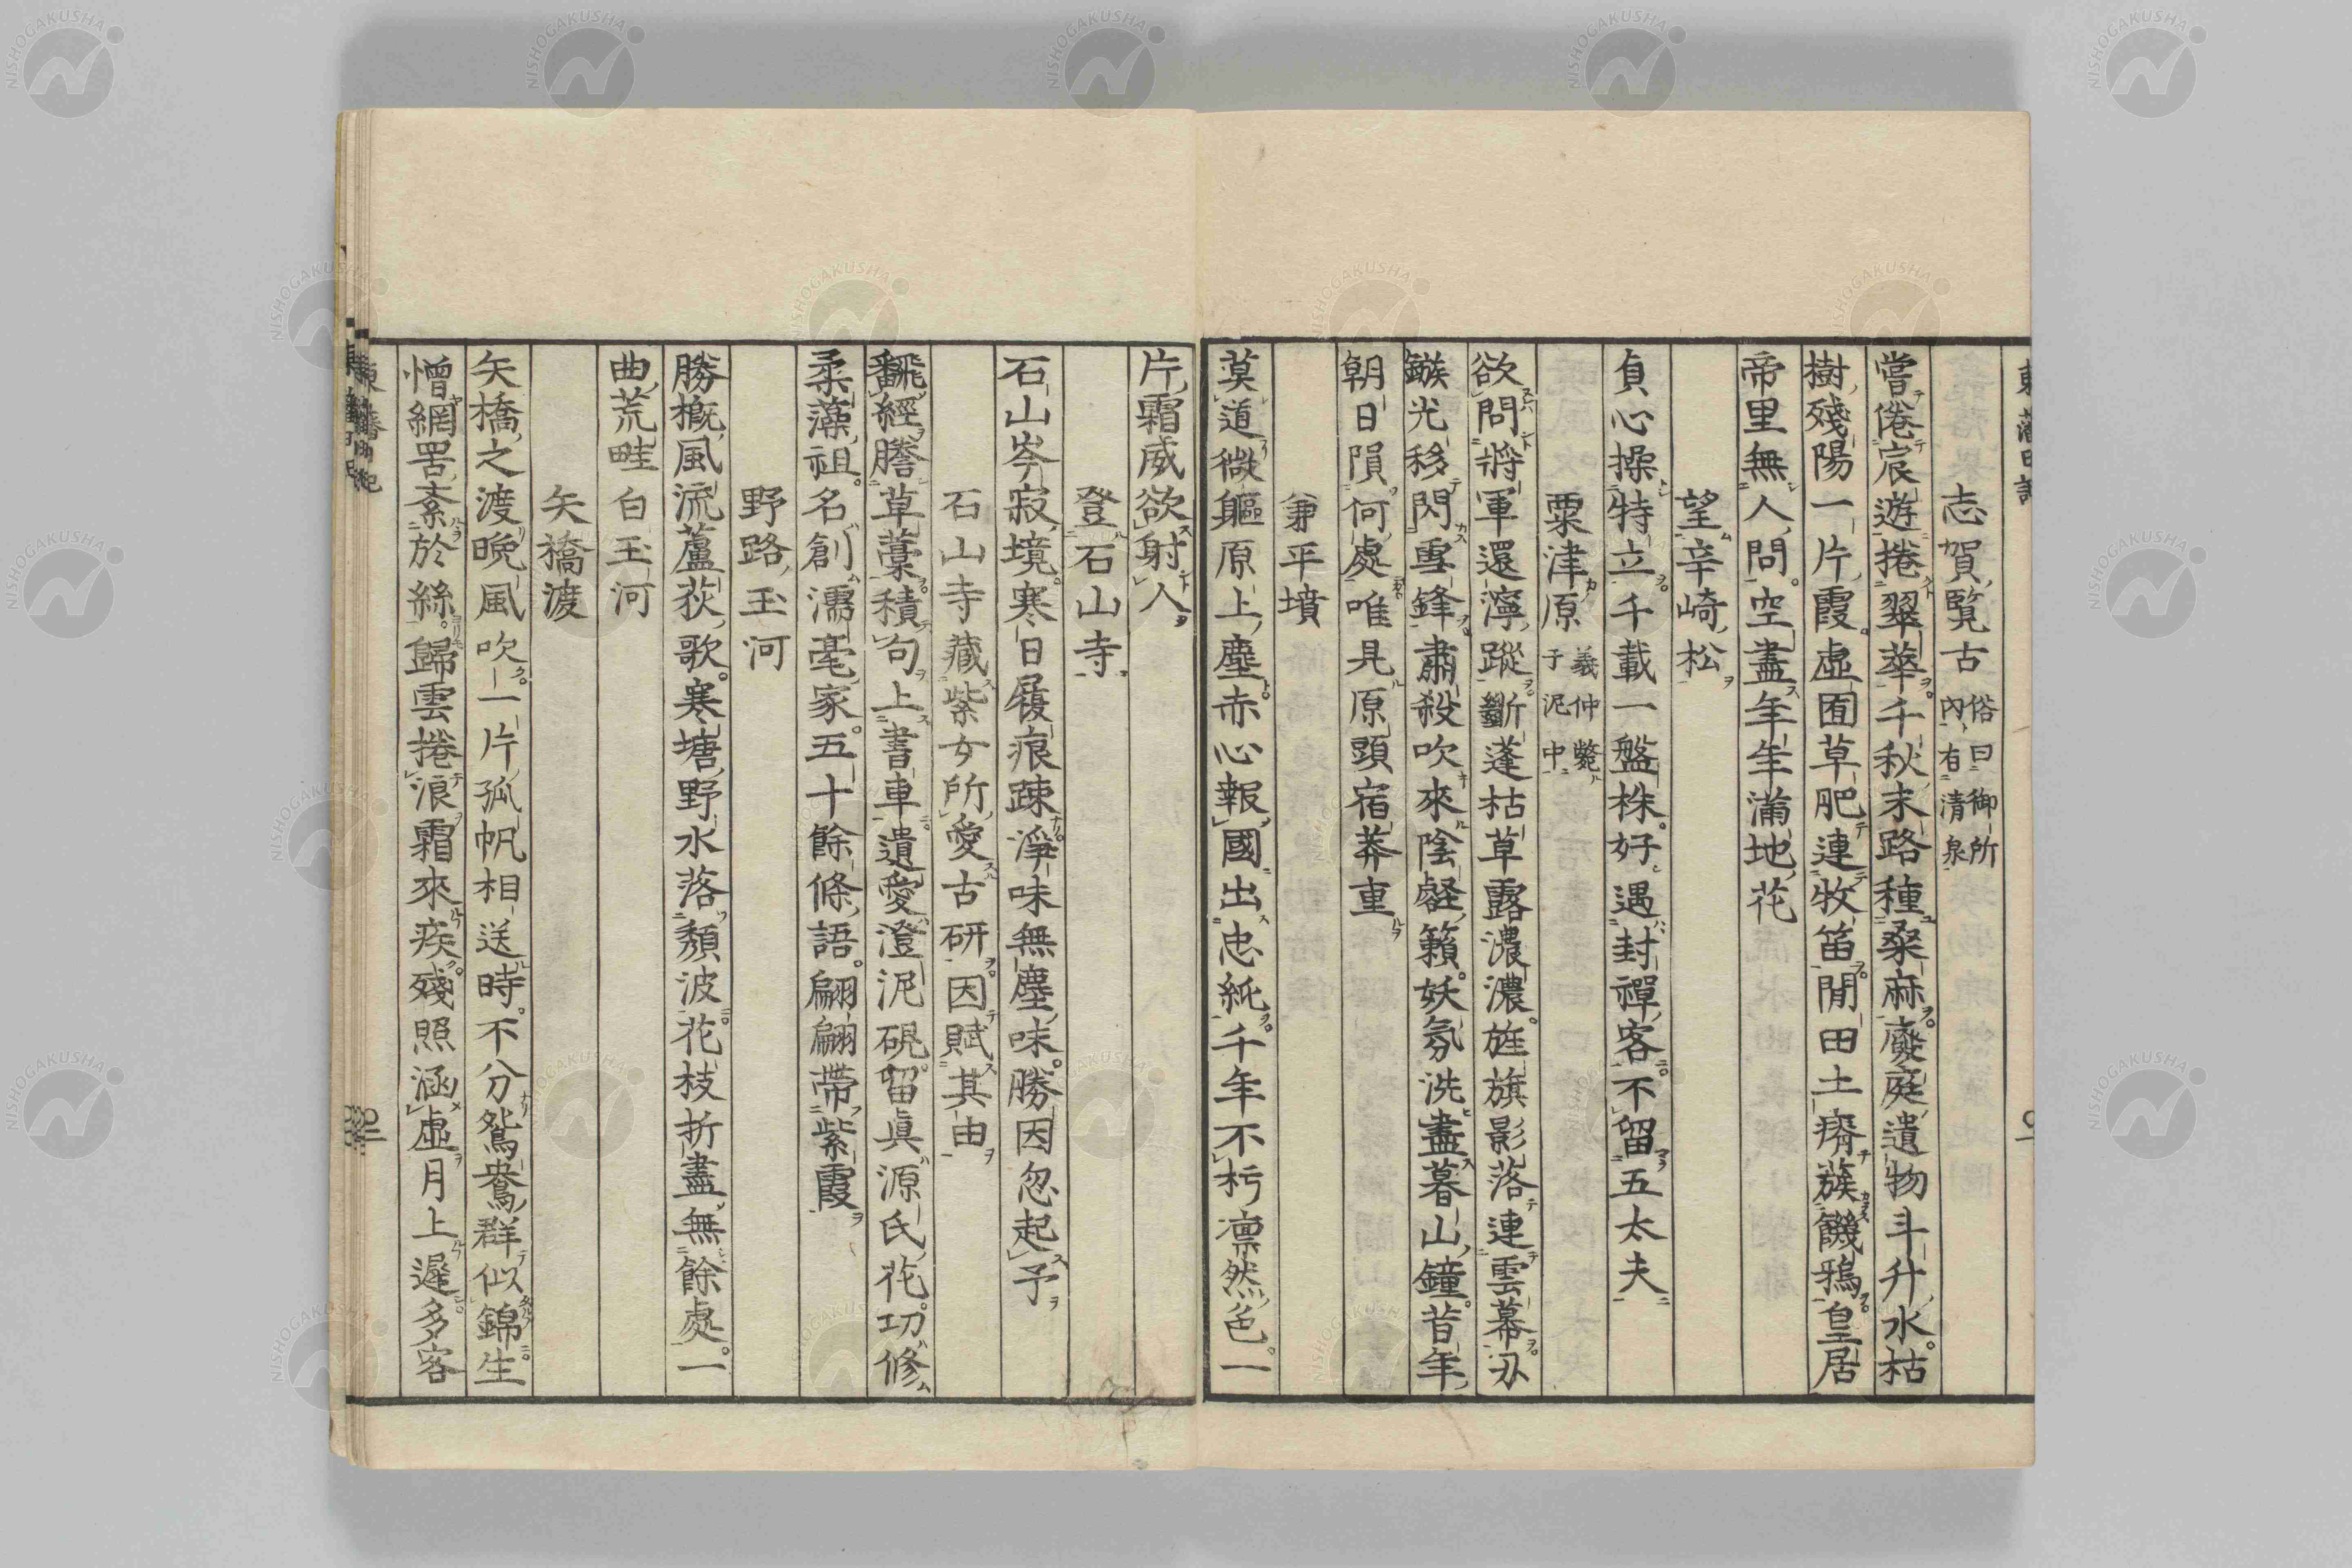 志賀覽古 俗曰御所
內有清泉
嘗倦宸遊捲翠華千秋末路種桑麻廢庭遺物斗升水枯
樹殘陽一片霞虛囿草肥連牧笛閒田土瘠簇饑鴉皇居
帝里無人問空盡年年滿地花
望辛崎松
貞心操特立千載一盤株好遇封禪客不留五太夫
粟津原 義仲斃
于泥中
欲問將軍還濘蹤斷蓬枯草露濃濃旌旗影落連雲幕刃
鏃光移閃雪鋒肅殺吹來陰壑籟妖氛洗盡暮山鐘昔年
朝日隕何處唯見原頭宿莽重
兼平墳
莫道微軀原上塵赤心報國出忠純千年不朽凛然色一
片霜威欲射人
登石山寺
石山岑寂境寒日屐痕疎淨味無塵味勝因忽起予
石山寺藏紫女所愛古研因賦其由
飜經謄草藁積句上書車遺愛澄泥硯留眞源氏花功修
柔藻祖名創濡毫家五十餘條語翩翩帶紫霞
野路玉河
勝概風流蘆荻歌寒塘野水落頽波花枝折盡無餘處一
曲荒畦白玉河
矢橋渡
矢橋之渡晚風吹一片孤帆相送時不分鴛鴦群似錦生
憎網罟紊於絲歸雲捲浪霜來疾殘照涵虛月上遲多客
NISHOGAKUSHA